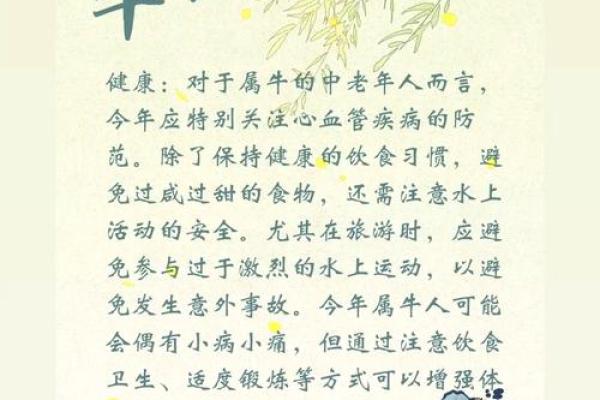 健康：对于属牛的中老年人而言，
今年应特别关注心血管疾病的防
范。除了保持健康的饮食习惯，避
免过咸过甜的食物，还需注意水上
活动的安全。尤其在旅游时，应避
免参与过于激烈的水上运动，以避
免发生意外事故。今年属牛人可能
会偶有小病小痛，但通过注意饮食
卫生、适度锻炼等方式可以增强体